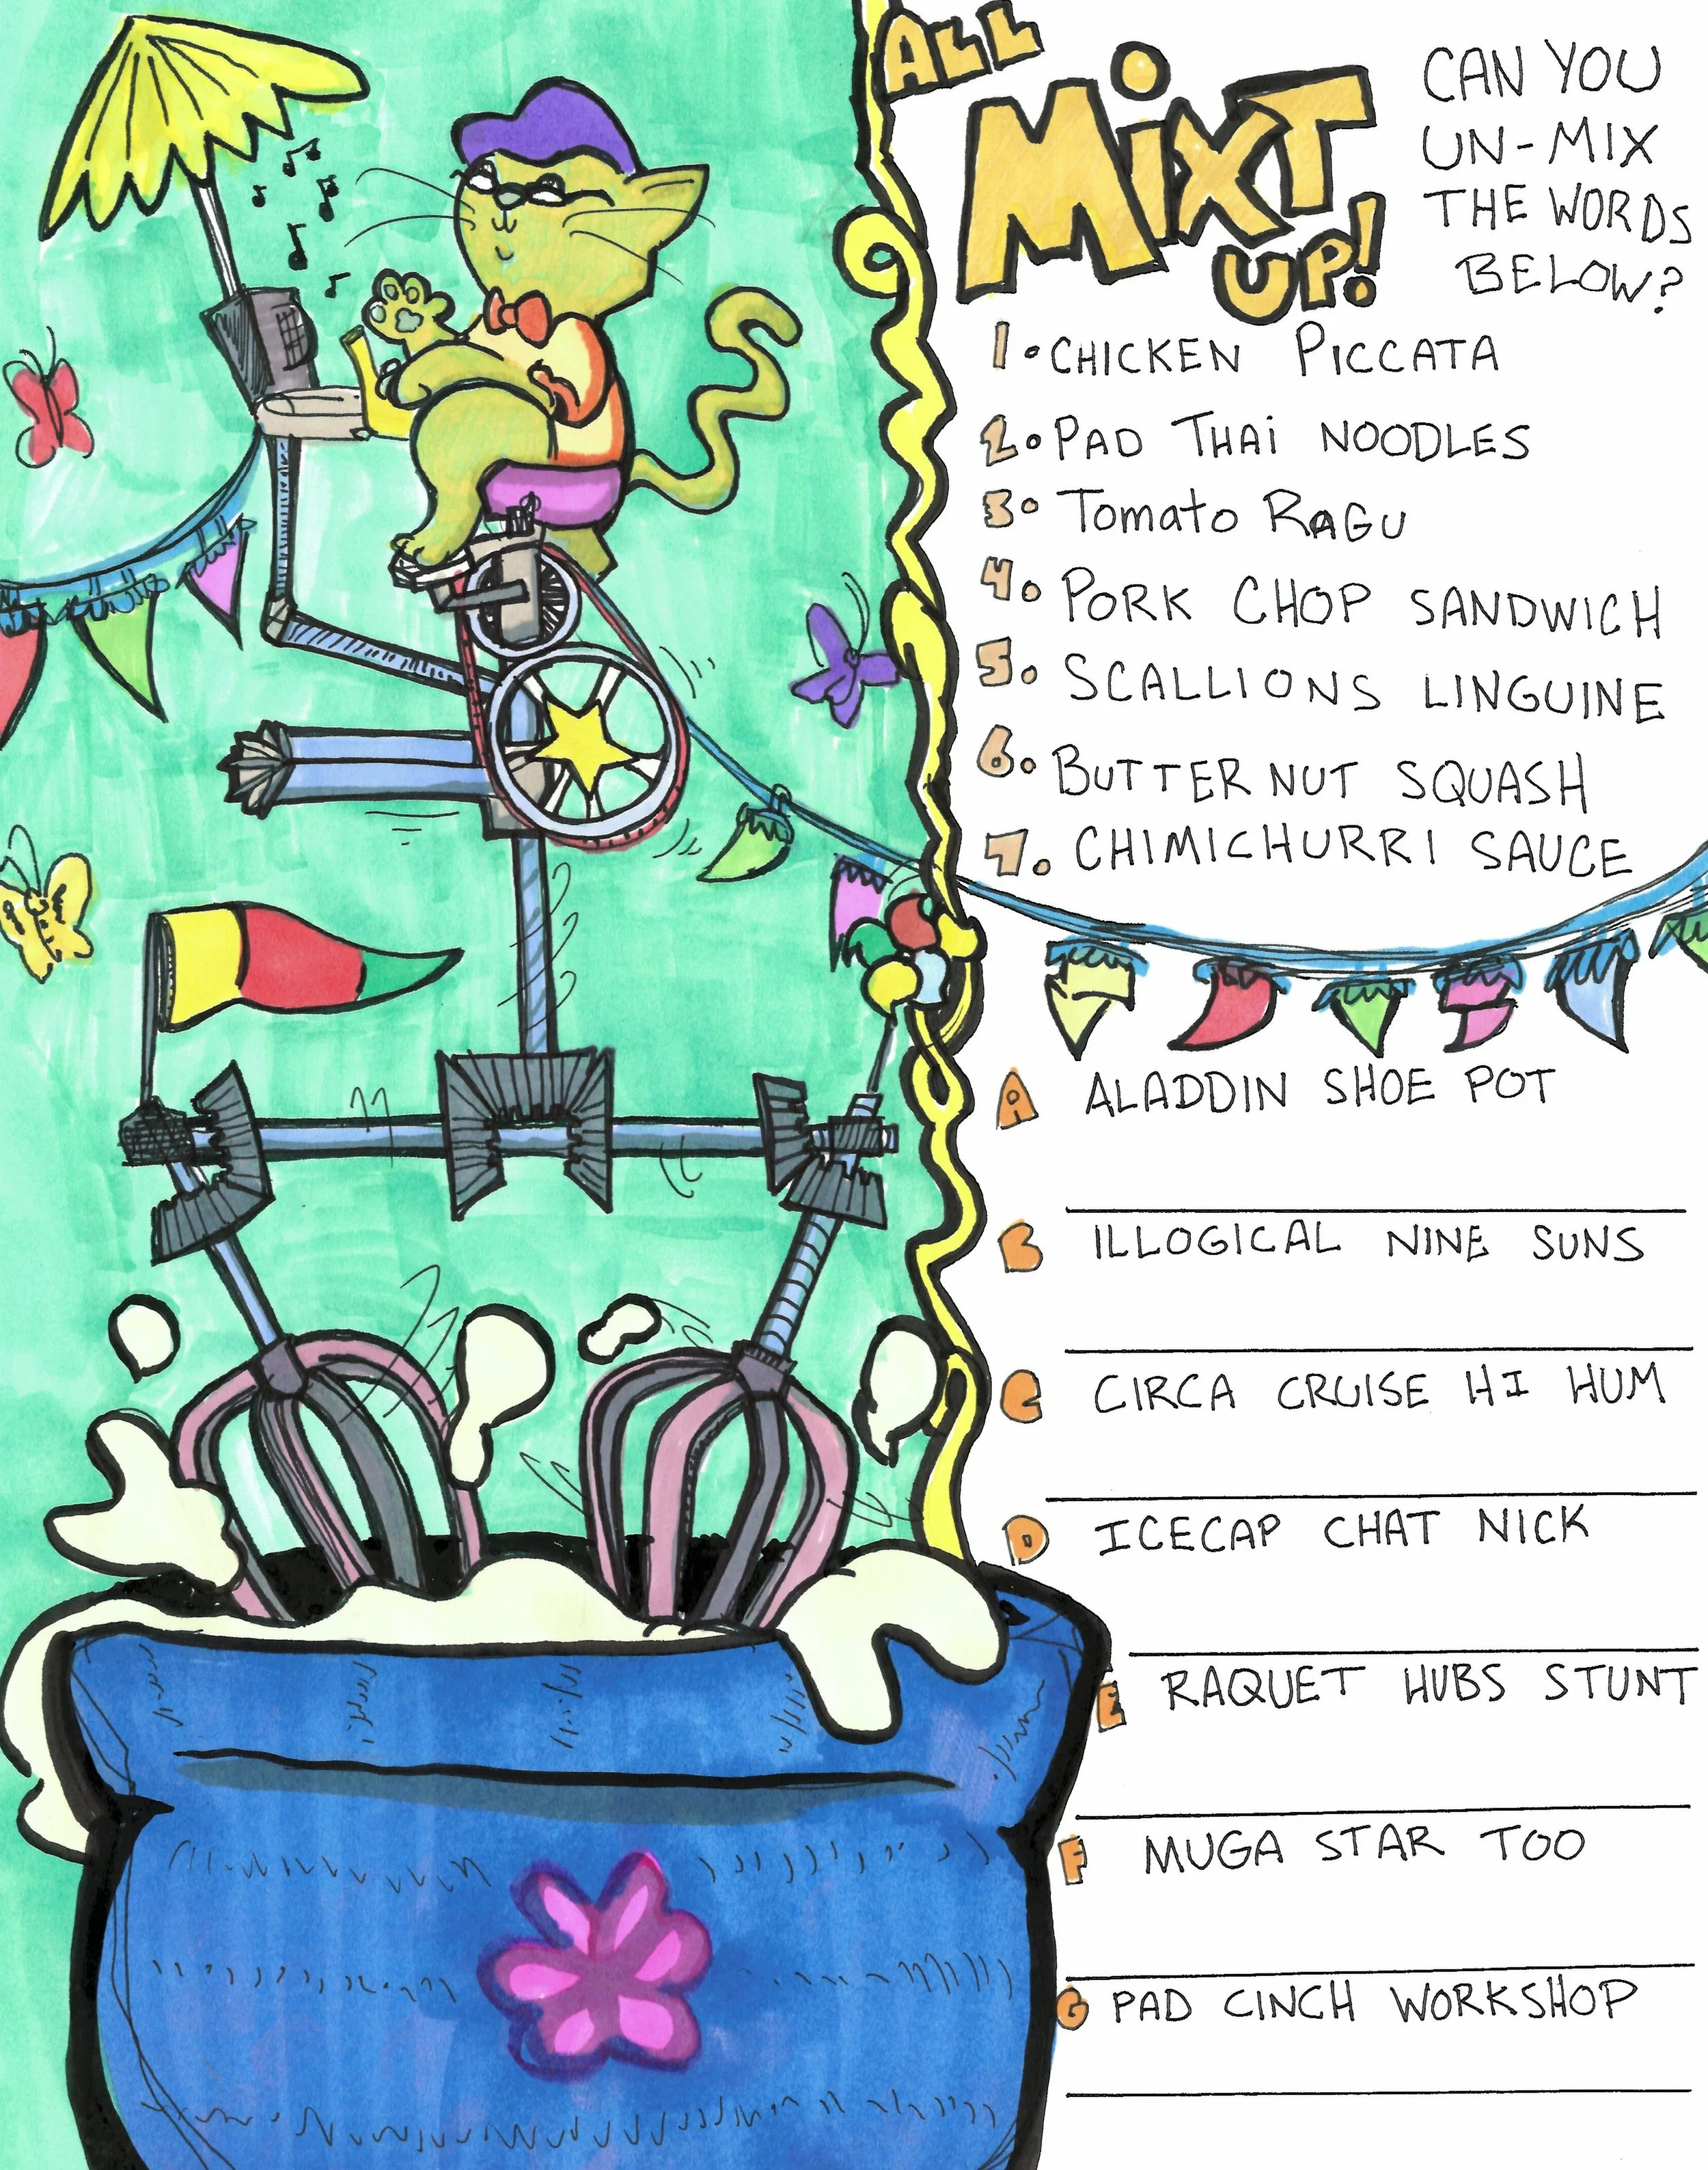 ALL
MiXT
UP!
CAN YOU
UN-MIX
THE WORDS
BELOW?
1. CHICKEN PICCATA
2. PAD THAi NOODLES
3. Tomato RAGU
4. PORK CHOP SANDWICH
5. SCALLIONS LINGUINE
6. BUTTERNUT SQUASH
7. CHIMICHURRI SAUCE
A ALADDIN SHOE POT
B ILLOGICAL NINE SUNS
C CIRCA CRUISE HI HUM
D ICECAP CHAT NICK
E RAQUET HUBS STUNT
F MUGA STAR TOO
G PAD CINCH WORKSHOP